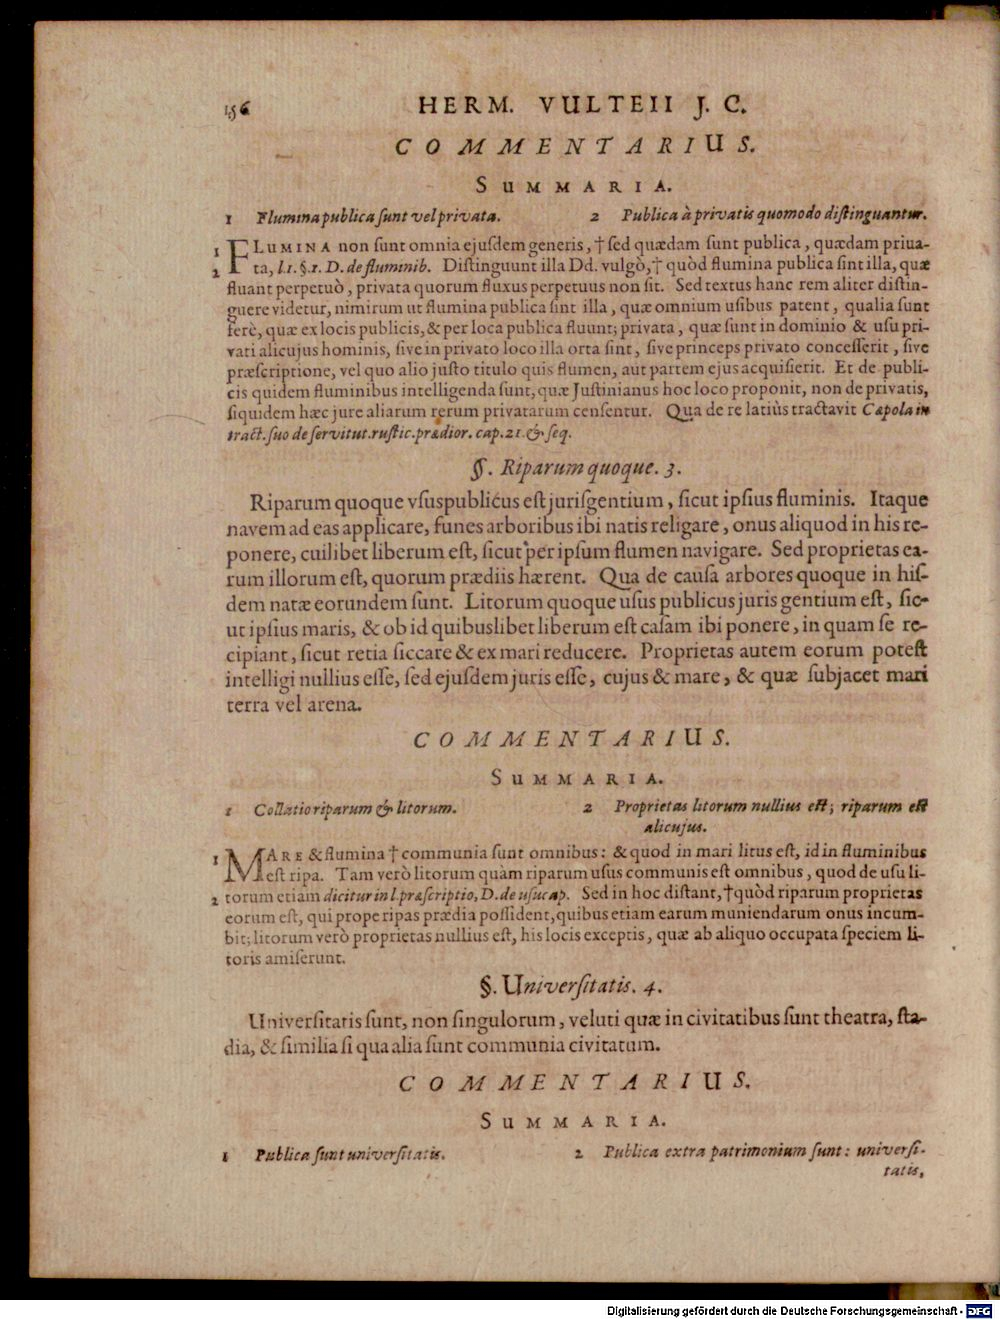 156 HERM. VULTEII J. C.
COMMENTARIUS.
SUMMARIA.
1 Flumina publica ſunt vel privata. 2 Publica à privatis quomodo diſtinguantur.
1 FLUMINA non ſunt omnia ejuſdem generis, † ſed quædam ſunt publica, quædam priua-
2 ta, l.1. §.1. D. de fluminib. Diſtinguunt illa Dd. vulgò, † quòd flumina publica ſint illa, quæ
fluant perpetuò, privata quorum fluxus perpetuus non ſit. Sed textus hanc rem aliter diſtin-
guere videtur, nimirum ut flumina publica ſint illa, quæ omnium uſibus patent, qualia ſunt
ferè, quæ ex locis publicis, & per loca publica fluunt; privata, quæ ſunt in dominio & uſu pri-
vati alicujus hominis, ſive in privato loco illa orta ſint, ſive princeps privato conceſſerit, ſive
præſcriptione, vel quo alio juſto titulo quis flumen, aut partem ejus acquiſierit. Et de publi-
cis quidem fluminibus intelligenda ſunt, quæ Juſtinianus hoc loco proponit, non de privatis,
ſiquidem hæc jure aliarum rerum privatarum cenſentur. Qua de re latiùs tractavit Cæpola in
tract. ſuo de ſervitut. ruſtic. prædior. cap. 21. & ſeq.
§. Riparum quoque. 3.
Riparum quoque vſus publicus eſt juris gentium, ſicut ipſius fluminis. Itaque
navem ad eas applicare, funes arboribus ibi natis religare, onus aliquod in his re-
ponere, cuilibet liberum eſt, ſicut per ipſum flumen navigare. Sed proprietas ea-
rum illorum eſt, quorum prædiis hærent. Qua de cauſa arbores quoque in hiſ-
dem natæ eorundem ſunt. Litorum quoque uſus publicus juris gentium eſt, ſic-
ut ipſius maris, & ob id quibuslibet liberum eſt caſam ibi ponere, in quam ſe re-
cipiant, ſicut retia ſiccare & ex mari reducere. Proprietas autem eorum poteſt
intelligi nullius eſſe, ſed ejuſdem juris eſſe, cujus & mare, & quæ ſubjacet mari
terra vel arena.
COMMENTARIUS.
SUMMARIA.
1 Collatio riparum & litorum. 2 Proprietas litorum nullius eſt; riparum eſt
alicujus.
1 MARE & flumina † communia ſunt omnibus: & quod in mari litus eſt, id in fluminibus
eſt ripa. Tam verò litorum quàm riparum uſus communis eſt omnibus, quod de uſu li-
2 torum etiam dicitur in l. præſcriptio, D. de uſucap. Sed in hoc diſtant, † quòd riparum proprietas
eorum eſt, qui prope ripas prædia poſſident, quibus etiam earum muniendarum onus incum-
bit; litorum verò proprietas nullius eſt, his locis exceptis, quæ ab aliquo occupata ſpeciem li-
toris amiſerunt.
§. Univerſitatis. 4.
Univerſitatis ſunt, non ſingulorum, veluti quæ in civitatibus ſunt theatra, ſta-
dia, & ſimilia ſi qua alia ſunt communia civitatum.
COMMENTARIUS.
SUMMARIA.
1 Publica ſunt univerſitatis. 2 Publica extra patrimonium ſunt: univerſi-
tatis,
Digitalisierung gefördert durch die Deutsche Forschungsgemeinschaft - DFG